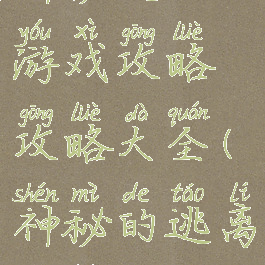 yóu xì gōng lüè
游戏攻略
gōng lüè dà quán
攻略大全(
shén mì de táo lí
神秘的逃离